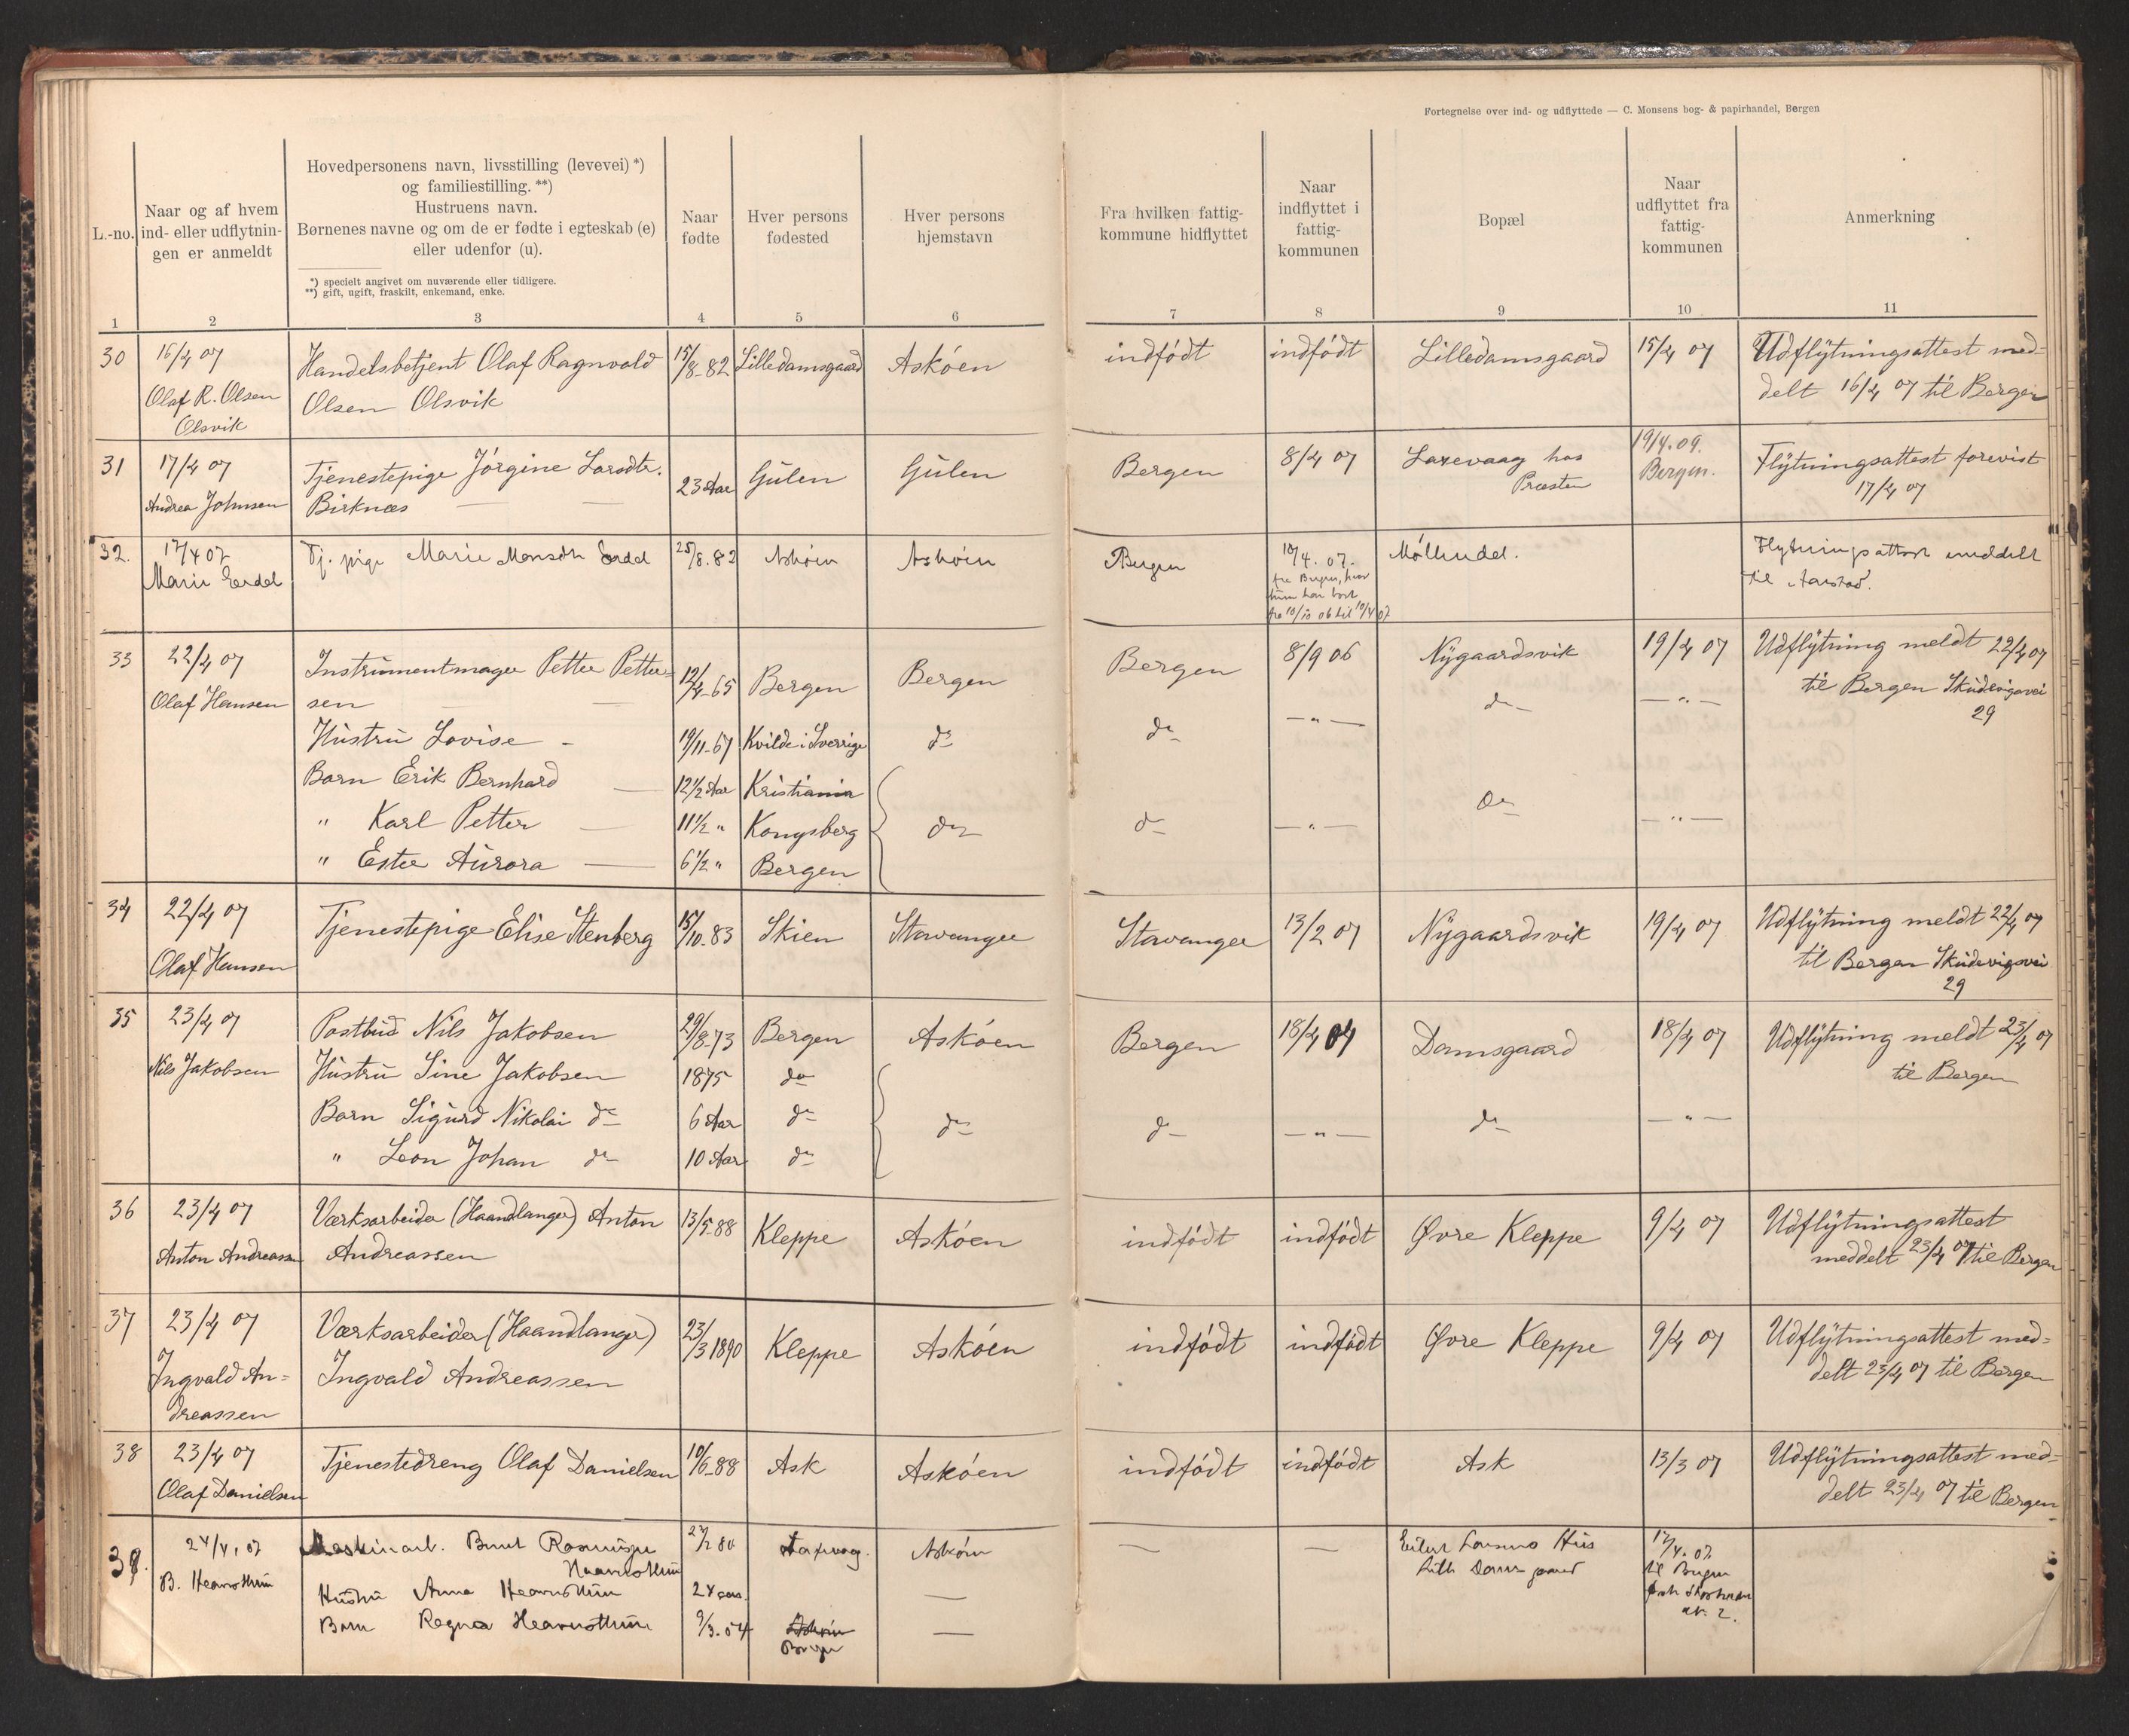 Fortegnelse over ind- og udflyttede — C. Monsens bog- & papirhandel, Bergen
L.-no.
Naar og af hvem
ind- eller udflytnin-
gen er anmeldt
Hovedpersonens navn, livsstilling (levevei) *)
og familiestilling. **)
Hustruens navn.
Børnenes navne og om de er fødte i egteskab (e)
eller udenfor (u).
*) specielt angivet om nuværende eller tidligere.
**) gift, ugift, fraskilt, enkemand, enke.
Naar
fødte
Hver persons
fødested
Hver persons
hjemstavn
Fra hvilken fattig-
kommune hidflyttet
Naar
indflyttet i
fattig-
kommunen
Bopæl
Naar
udflyttet fra
fattig-
kommunen
Anmerkning
1 2 3 4 5 6 7 8 9 10 11
30 16/4 07 Handelsbetjent Olaf Ragnvald 15/8-82 Lilledamsgaard Askóen indfódt indfódt Lilledamsgaard 15/4 07 Udflytningsattest med-
Olaf R. Olsen Olsen Olsvik delt 16/4 07 til Bergen
Olsvik
31 17/4 07 Tjenestepige Jórgine Larsdtr. 23 Aar Gülen Gülen Bergen 8/4 07 Laxevaag hos 19/4.09. Flytningsattest forevist
Andrea Johnsen Birknæs Præsten Bergen. 17/4 07
32. 17/4 07 Tj. pige Marie Monsdtr Eerdal 25/8.82 Askóen Askóen Bergen 10/4. 07. Móllendal. Flytningsattest meddelt
Marie Eerdal fra Bergen, hvor til Aarstad.
hun har boet
fra 10/10 06 til 10/4 07
33 22/4 07 Instrumentmager Petter Petter- 12/4-65 Bergen Bergen Bergen 8/9 06 Nygaardsvik 19/4 07 Udflytning meldt 22/4 07
Olaf Hansen sen do — " — til Bergen Skudevigsvei
29
Hüstrü Lovise - 19/11-67 Kvilde i Sverrige do do — " —
Barn Erik Bernhard 12½ Aar Kristiania
" Karl Petter 11½ " Kongsberg do do — " — do — " —
" Ester Aürora 6½ " Bergen
34 22/4 07 Tjenestepige Elise Stenberg 15/10-83 Skien Stavanger Stavanger 13/2 07 Nygaardsvik 19/4 07 Udflytning meldt 22/4 07
Olaf Hansen til Bergen Skudevigsvei
29
35 23/4 07 Postbüd Nils Jakobsen 29/8-73 Bergen Askóen Bergen 18/4 04 Damsgaard 18/4 07 Udflytning meldt 23/4 07
Nils Jakobsen Hüstrü Sine Jakobsen 1875 do til Bergen
Barn Sigürd Nikolai do 6 Aar do do do — " — do — " —
" Leon Johan do 10 Aar do
36 23/4 07 Værksarbeider (Haandlanger) Anton 13/5-88 Kleppe Askóen indfódt indfódt Øvre Kleppe 9/4 07 Udflytningsattest
Anton Andreassen Andreassen meddelt 23/4 07 til Bergen
37 23/4 07 Værksarbeider (Haandlanger) 23/3 1890 Kleppe Askóen indfódt indfódt Øvre Kleppe 9/4 07 Udflytningsattest med-
Ingvald An- Ingvald Andreassen delt 23/4 07 til Bergen
dreassen
38 23/4 07 Tjenestedreng Olaf Danielsen 10/6-88 Ask Askóen indfódt indfódt Ask 13/3 07 Udflytningsattest med-
Olaf Danielsen delt 23/4 07 til Bergen
39. 24/4, 07 Maskinarb. 80 Laxevaag. Askóen — — Hus 17/4. 07.
B. Lille Damsgaard til Bergen
Hustru Anna 24 aar. — nr. 2.
Barn Ragna 9/3.04 Askóen —
Bergen